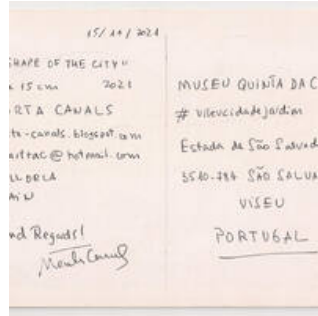 15/11/2021
SHAPE OF THE CITY"
15 cm 2021
RTA CANALS
ta-canals.blogspot.com
@hotmail.com
LLORCA
AIN
nd Regards!
MUSEU QUINTA DA C
# viseucidadejardim
Estada de São Salvad
3510-784 SÃO SALVA
VISEU
PORTUGAL